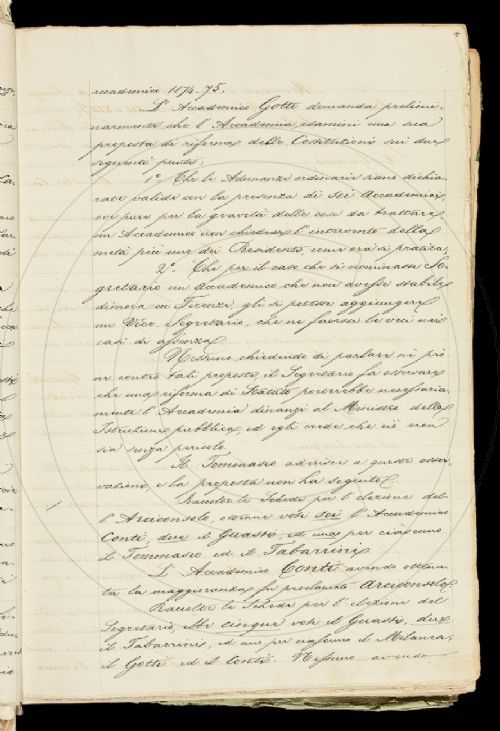 accademico 1874-75.
L'Accademico Gotti domanda prelimi-
narmente che l'Accademia esamini una sua
proposta di riforma delle Costituzioni sui due
seguenti punti:
1º Che le Adunanze ordinarie siano dichia-
rate valide con la presenza di sei Accademici
ove pure per la gravità delle cose da trattare
un Accademico non chiedesse l'intervento della
metà più uno dei Residenti, come ora si pratica.
2º. Che per il caso che si nominasse Se-
gretario un Accademico che non avesse stabile
dimora in Firenze, gli si potesse aggiungere
un Vice Segretario, che ne facesse le veci nei
casi di assenza.
Nessuno chiedendo di parlare nè pro
nè contro tali proposte, il Segretario fa osservare
che una riforma di Statuto porterebbe necessaria-
mente l'Accademia dinanzi al Ministro della
Istruzione pubblica, ed egli crede che ciò non
sia senza pericolo.
Il Tommaseo aderisce a queste osser-
vazioni, e la proposta non ha seguito.
Raccolte le Schede per l'elezione del-
l'Arciconsolo, ottenne voti sei l'Accademico
Conti, due il Guasti, ed uno per ciascuno
il Tommaseo ed il Tabarrini.
L'Accademico Conti avendo ottenu-
ta la maggioranza fu proclamato Arciconsolo.
Raccolte le Schede per l'elezione del
Segretario, ebbe cinque voti il Guasti, due
il Tabarrini, ed uno per ciascuno il Milanesi,
il Gotti ed il Conti. Nessuno avendo